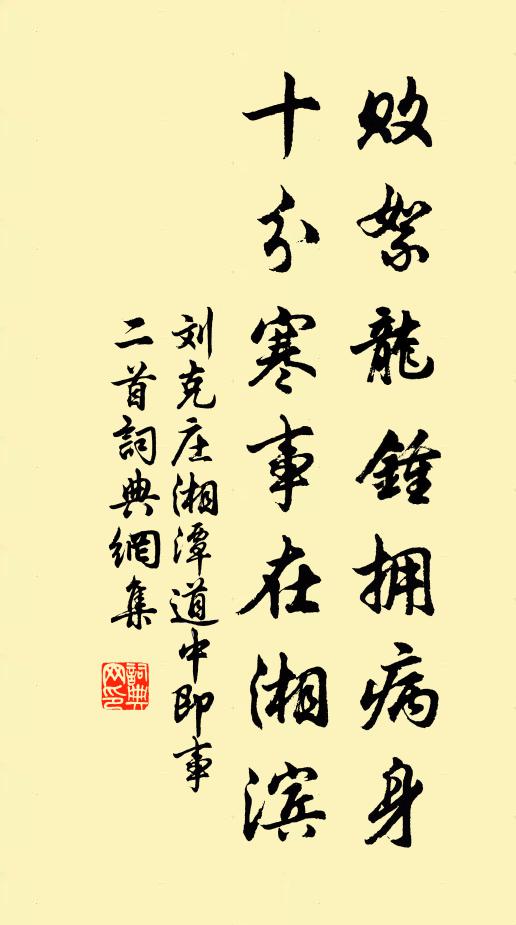 败絮龍鍾拥病身
十分寒事在湘滨
刘克庄湘潭道中即事
二首詞典網集
詞典
网印